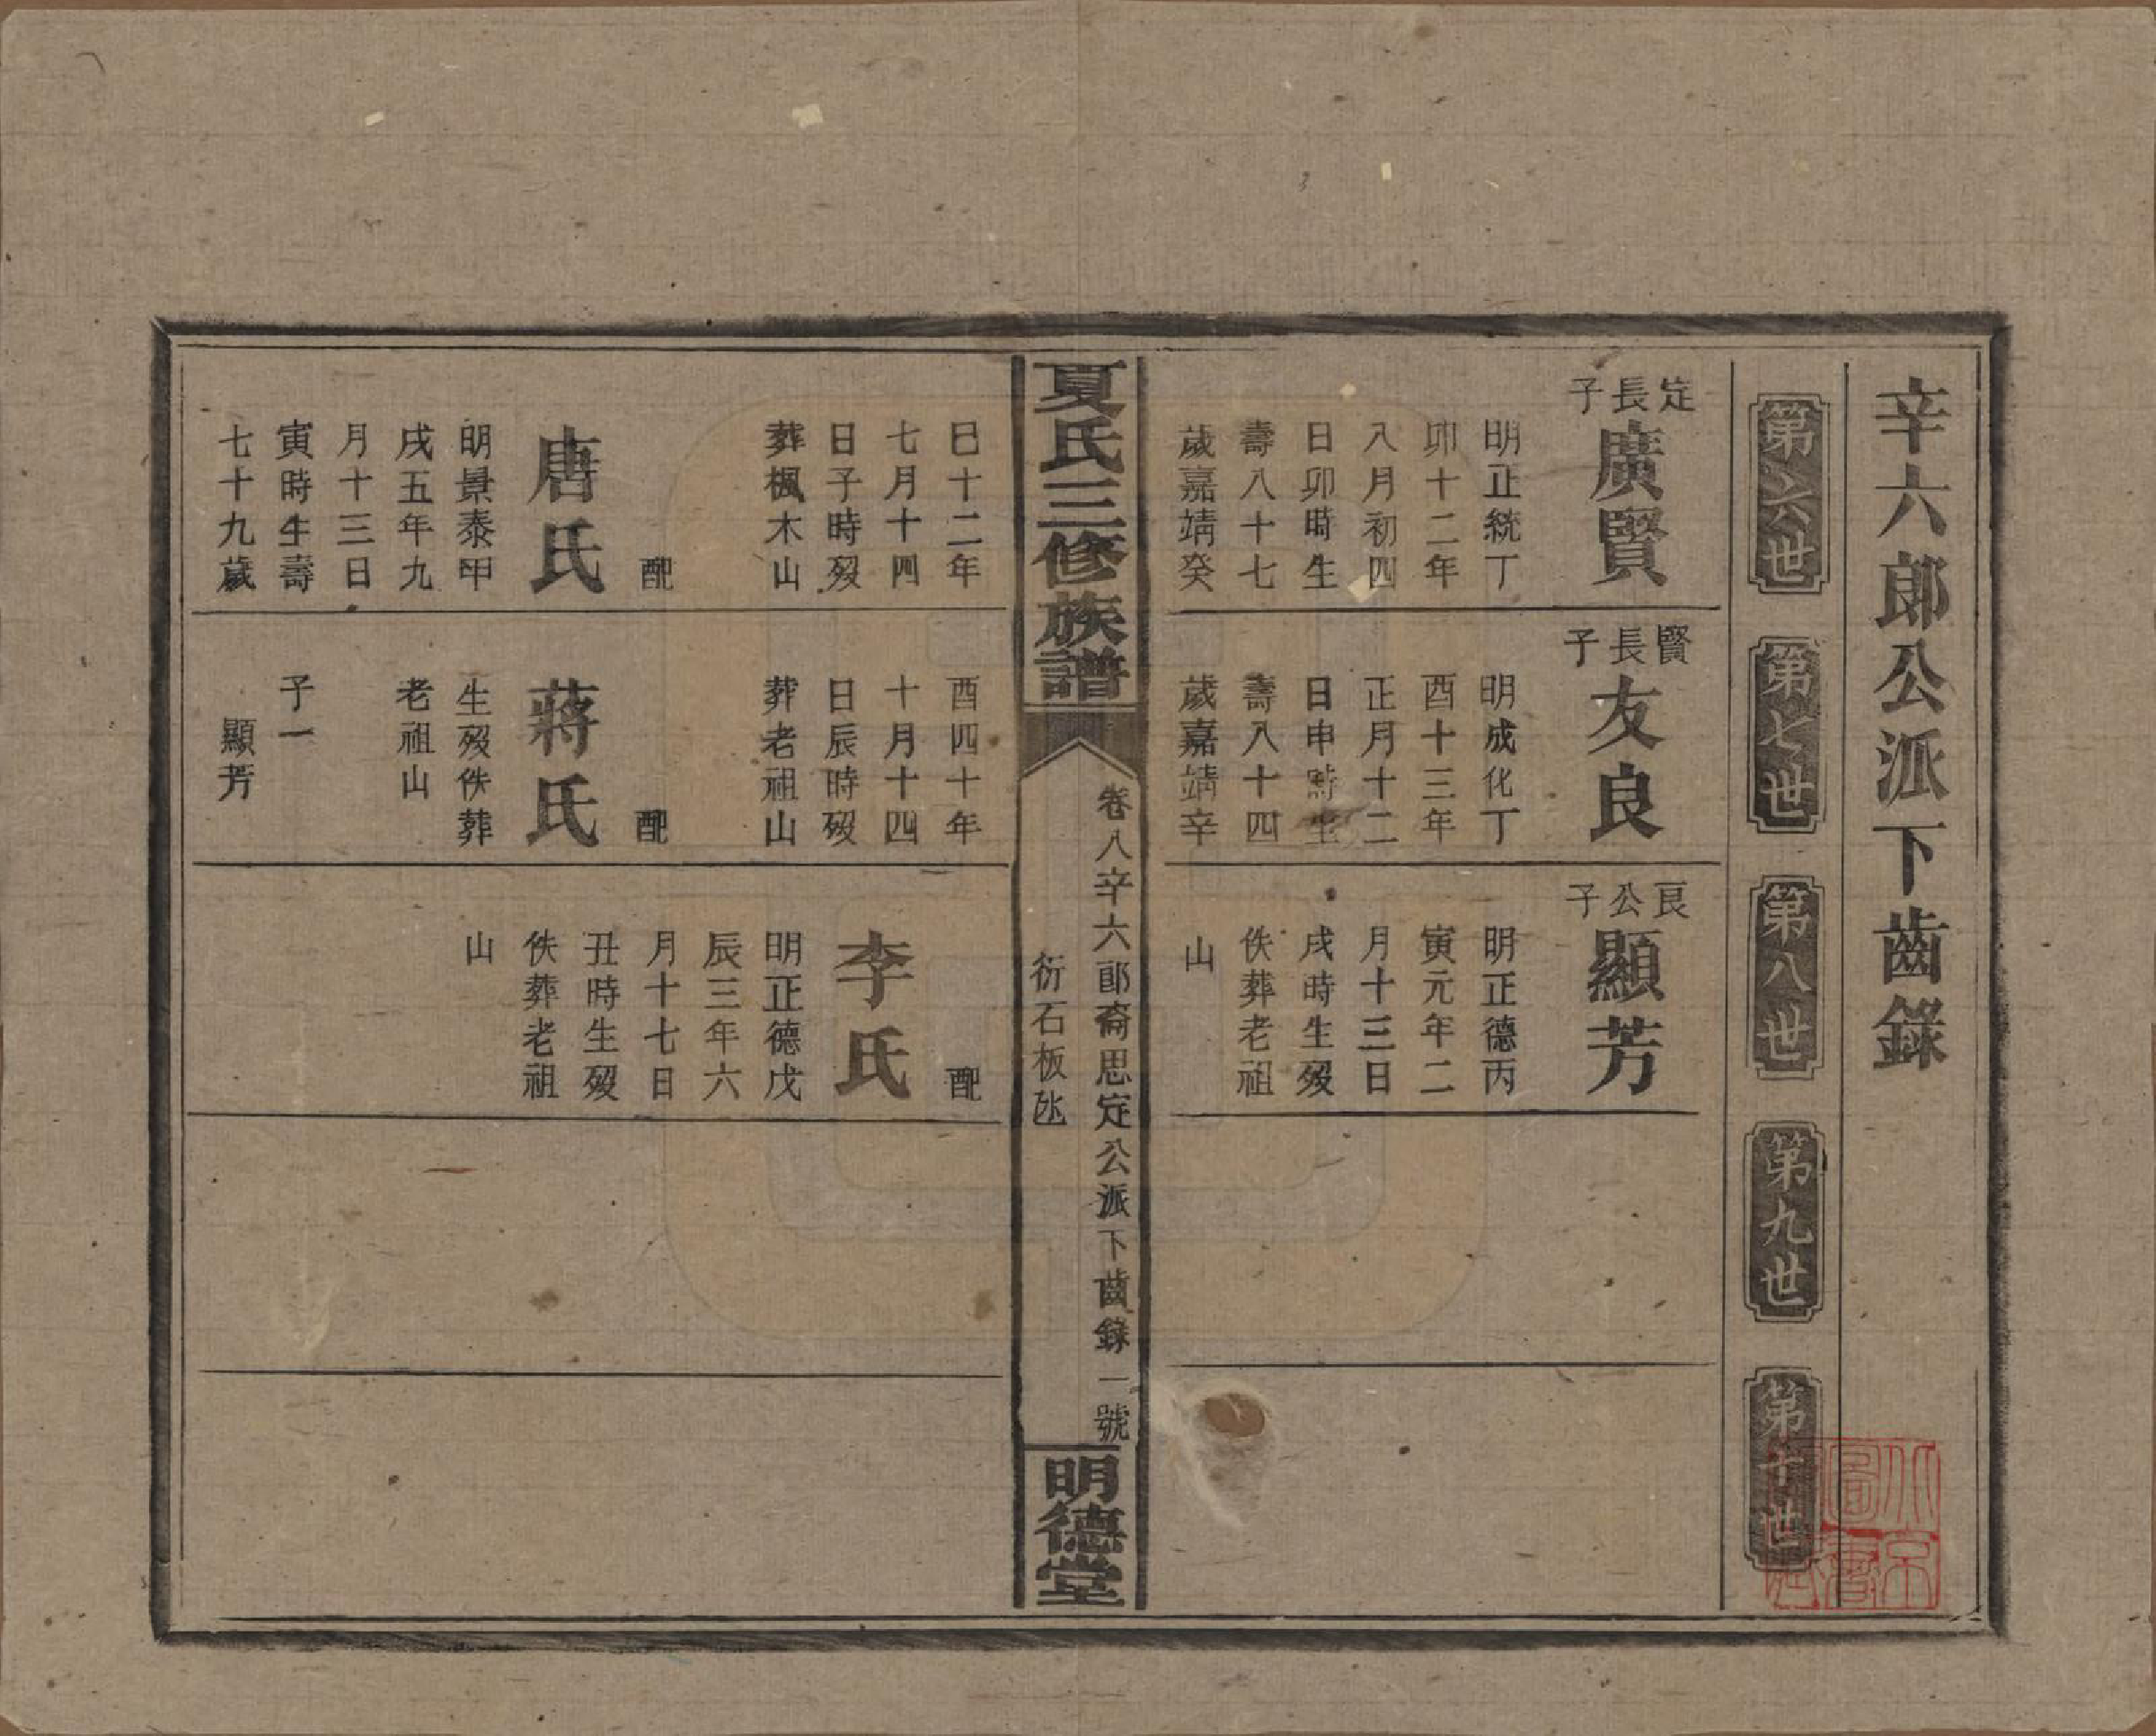 辛六郎公派下齒錄
第六世
第七世
第八世
第九世
第十世
定長子
廣賢
明正統丁
卯十二年
八月初四
日卯時生
壽八十七
歲嘉靖癸
巳十二年
七月十四
日子時歿
葬楓木山
配
唐氏
明景泰甲
戌五年九
月十三日
寅時生壽
七十九歲
賢長子
友良
明成化丁
酉十三年
正月十二
日申時生
壽八十四
歲嘉靖辛
酉四十年
十月十四
日辰時歿
葬老祖山
配
蔣氏
生歿佚葬
老祖山
子一
顯芳
良公子
顯芳
明正德丙
寅元年二
月十三日
戌時生歿
佚葬老祖
山
配
李氏
明正德戊
辰三年六
月十七日
丑時生歿
佚葬老祖
山
夏氏三修族譜
卷八辛六郎裔思定公派下齒錄 一號
衍石板氹
明德堂
北京圖書